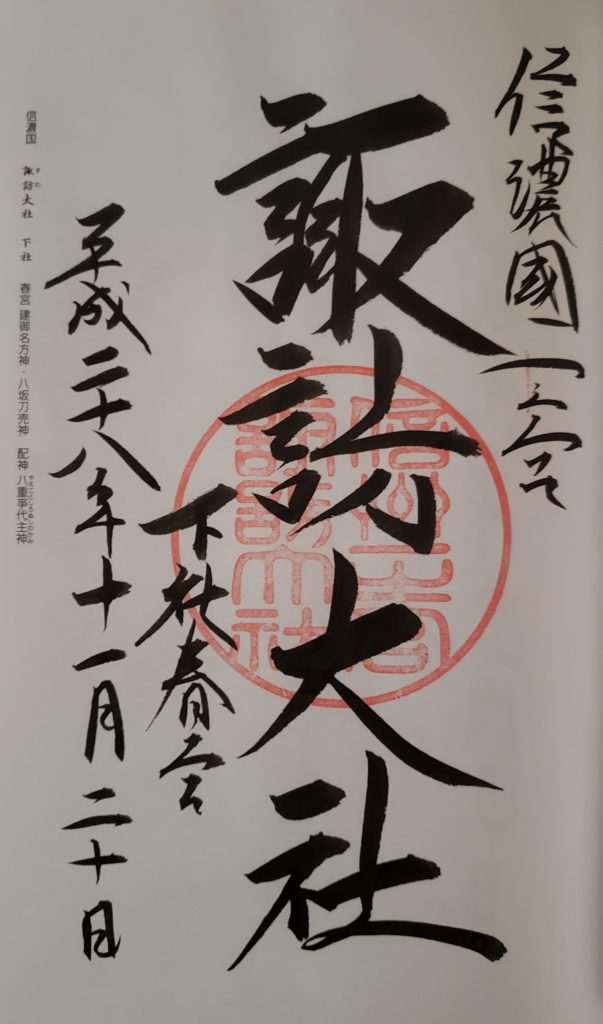 信濃國一之宮
諏訪大社
下社春宮
平成二十八年十一月二十日
信濃国 諏訪大社 下社 春宮 建御名方神・八坂刀売神 配神 八重事代主神
すわ
やえことしろぬしのかみ